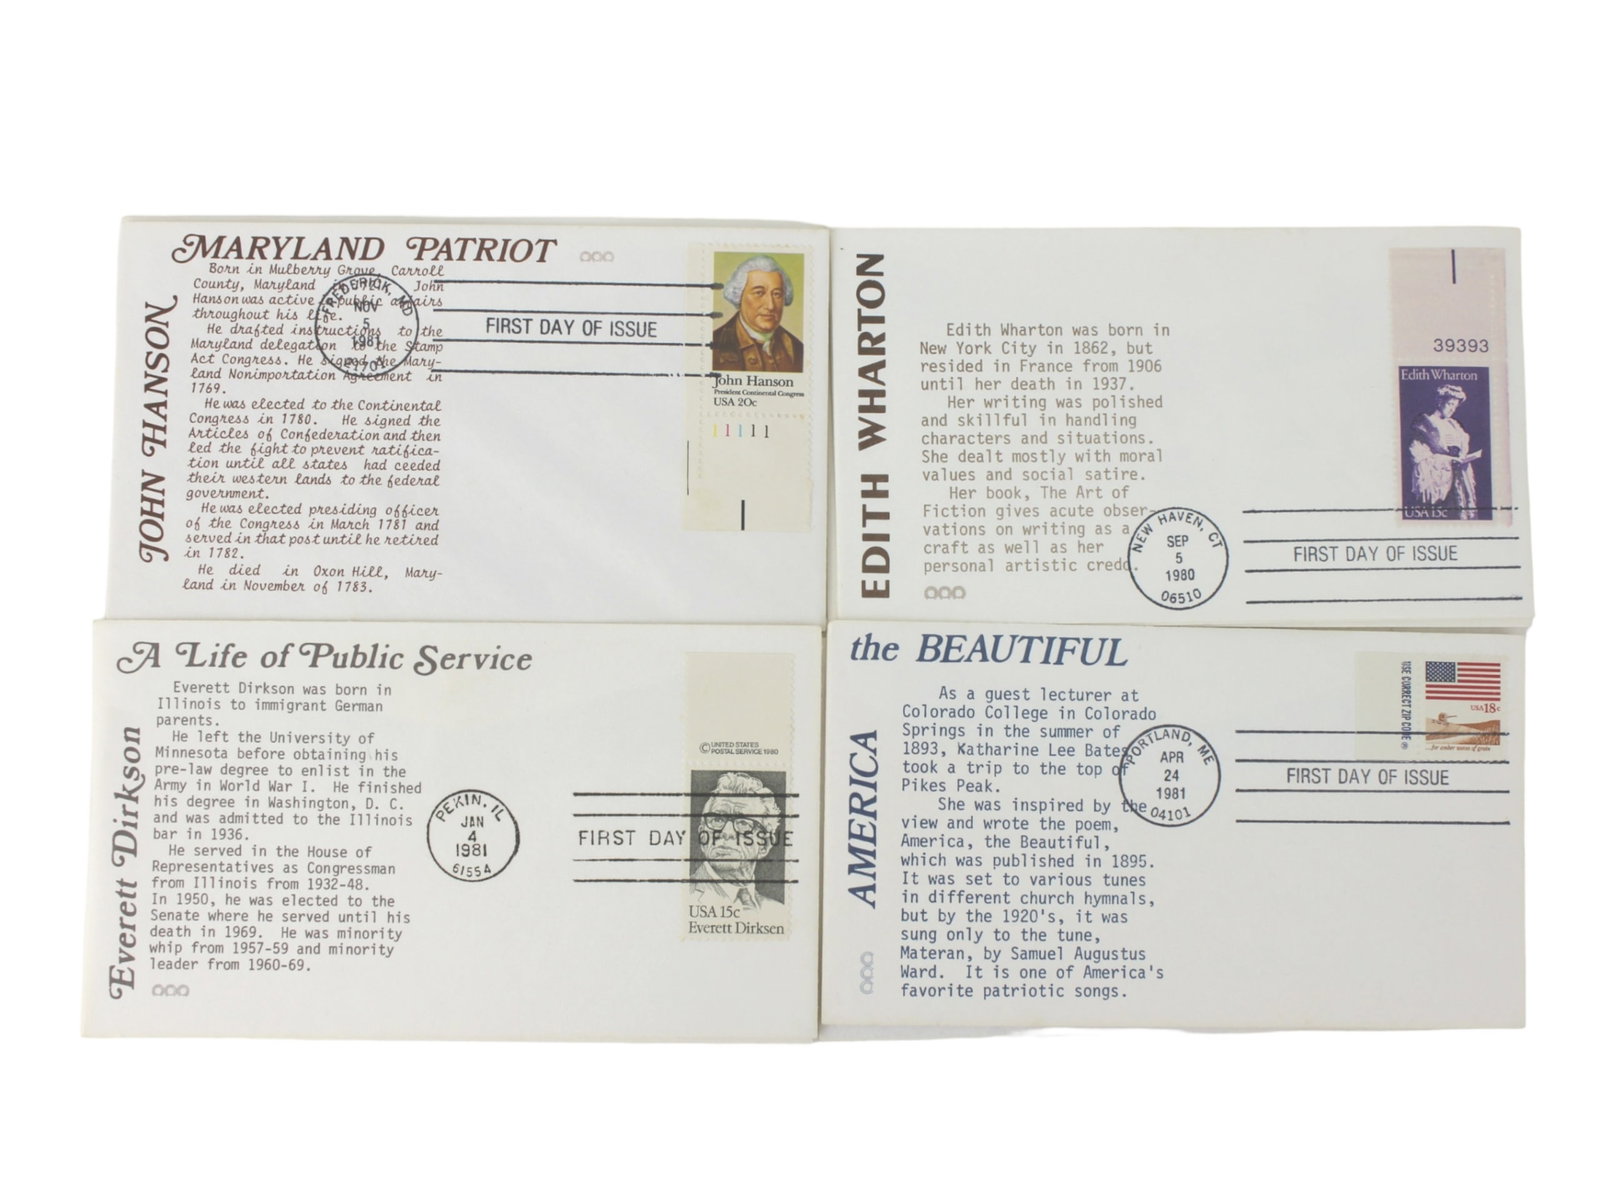 MARYLAND PATRIOT
JOHN HANSON
Born in Mulberry Grove, Carroll
County, Maryland in 1721, John
Hanson was active in public affairs
throughout his life.
He drafted instructions to the
Maryland delegation to the Stamp
Act Congress. He signed the Mary-
land Nonimportation Agreement in
1769.
He was elected to the Continental
Congress in 1780. He signed the
Articles of Confederation and then
led the fight to prevent ratifica-
tion until all states had ceeded
their western lands to the federal
government.
He was elected presiding officer
of the Congress in March 1781 and
served in that post until he retired
in 1782.
He died in Oxon Hill, Mary-
land in November of 1783.
FREDERICK, MD
NOV
5
1981
21701
FIRST DAY OF ISSUE
John Hanson
President Continental Congress
USA 20c
11111
EDITH WHARTON
Edith Wharton was born in
New York City in 1862, but
resided in France from 1906
until her death in 1937.
Her writing was polished
and skillful in handling
characters and situations.
She dealt mostly with moral
values and social satire.
Her book, The Art of
Fiction gives acute obser-
vations on writing as a
craft as well as her
personal artistic credo.
NEW HAVEN, CT
SEP
5
1980
06510
39393
Edith Wharton
USA 15c
FIRST DAY OF ISSUE
A Life of Public Service
Everett Dirkson
Everett Dirkson was born in
Illinois to immigrant German
parents.
He left the University of
Minnesota before obtaining his
pre-law degree to enlist in the
Army in World War I. He finished
his degree in Washington, D. C.
and was admitted to the Illinois
bar in 1936.
He served in the House of
Representatives as Congressman
from Illinois from 1932-48.
In 1950, he was elected to the
Senate where he served until his
death in 1969. He was minority
whip from 1957-59 and minority
leader from 1960-69.
PEKIN, IL
JAN
4
1981
61554
© UNITED STATES
POSTAL SERVICE 1980
FIRST DAY OF ISSUE
USA 15c
Everett Dirksen
the BEAUTIFUL
AMERICA
As a guest lecturer at
Colorado College in Colorado
Springs in the summer of
1893, Katharine Lee Bates
took a trip to the top of
Pikes Peak.
She was inspired by the
view and wrote the poem,
America, the Beautiful,
which was published in 1895.
It was set to various tunes
in different church hymnals,
but by the 1920's, it was
sung only to the tune,
Materan, by Samuel Augustus
Ward. It is one of America's
favorite patriotic songs.
PORTLAND, ME
APR
24
1981
04101
USE CORRECT ZIP CODE ®
USA 18c
...for amber waves of grain
FIRST DAY OF ISSUE